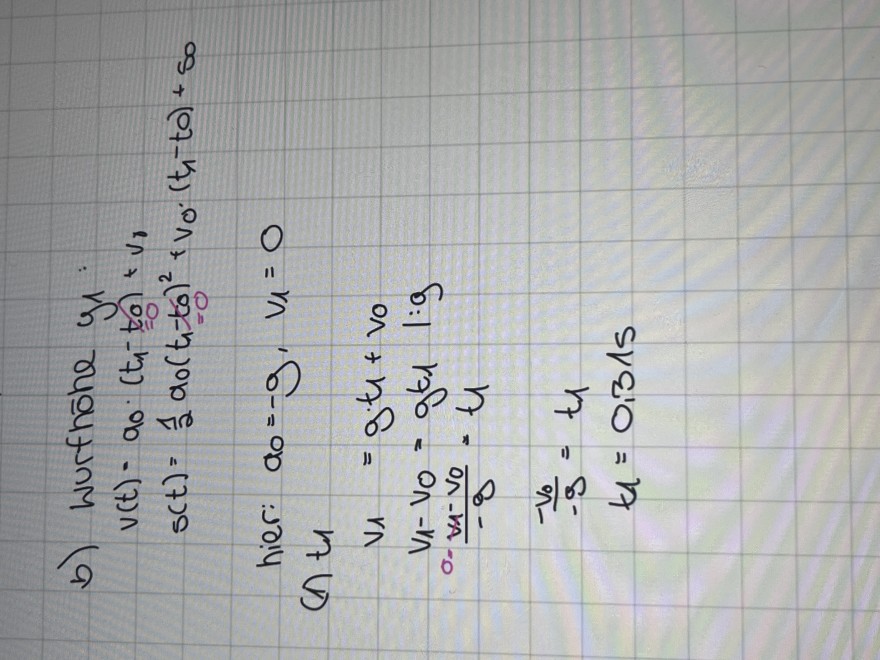 b) Wurfhöhe y1:
v(t) = a0 · (t1 - t0) + v0
=0
s(t) = 1/2 a0 (t1 - t0)² + v0 · (t1 - t0) + s0
=0
hier: a0 = -g, v1 = 0
(1) t1
v1 = g · t1 + v0
v1 - v0 = g t1 |:g
0= (v1 - v0)/-g = t1
-v0/-g = t1
t1 = 0,31s